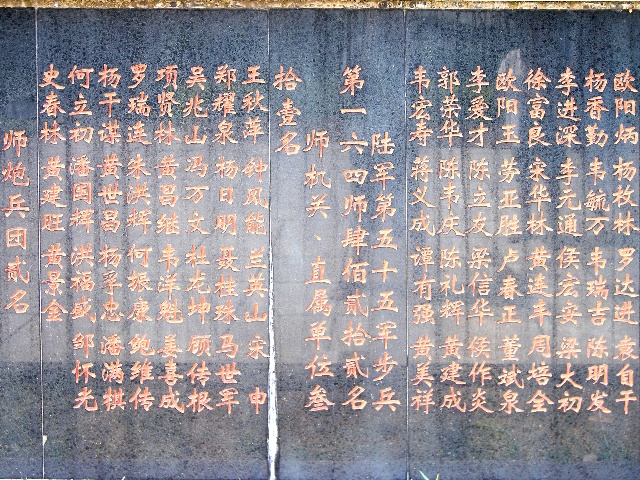 欧阳炳 杨枚林 罗达进 袁自干
杨香勤 韦毓万 韦瑞吉 陈明发
李进深 李元通 侯宏安 梁大初
徐富良 宋华林 黄连丰 周培全
欧阳玉 劳亚胜 卢春正 董斌泉
李爱才 陈立友 梁信华 侯作炎
郭荣华 陈韦庆 陈礼辉 黄建成
韦宏寿 蒋义成 谭有强 黄美祥
陆军第五十五军步兵
第一六四师肆佰贰拾贰名
师机关、直属单位叁
拾壹名
王秋萍 钟风能 兰英山 宋申
郑耀泉 杨日明 聂桂珠 马世军
吴兆山 冯万文 杜龙坤 顾传根
项贤林 黄昌继 韦洋魁 姜喜成
罗瑞连 朱洪辉 何振康 鲍维传
杨干谋 黄世昌 杨孚忠 潘满棋
何立初 潘国辉 洪福盛 邹怀光
史春林 黄建旺 黄景全
师炮兵团贰名